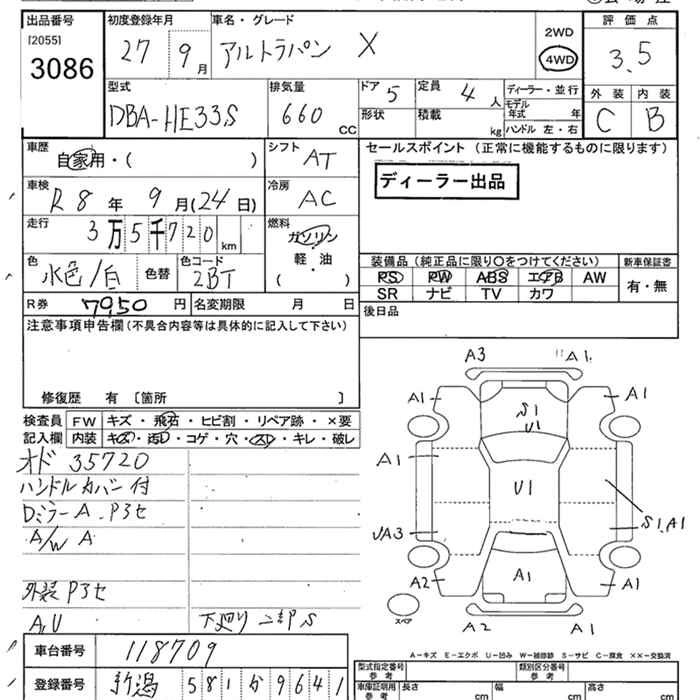 出品番号
[2055]
3086
初度登録年月
27 9月
車名・グレード
アルトラパン X
2WD
4WD
評価点
3.5
外装 内装
C B
型式
DBA-HE33S
排気量
660 CC
ドア 5
形状
定員 4人
積載 kg
ディーラー・並行
モデル年式 年
ハンドル 左・右
車歴
自家用・( )
シフト
AT
車検
R8年 9月(24日)
冷房
AC
走行
3万5千720 km
燃料
ガソリン
軽・油
( )
色
水色/白
色替
色コード
2BT
R券 7950円
名変期限 月 日
セールスポイント (正常に機能するものに限ります)
ディーラー出品
装備品 (純正品に限り○をつけてください)
PS PW ABS エアB AW
SR ナビ TV カワ
新車保証書
有・無
後日品
注意事項申告欄 (不具合内容等は具体的に記入して下さい)
修復歴 有 [箇所 ]
検査員記入欄
FW キズ・飛石・ヒビ割・リペア跡・×要
内装 キズ・汚レ・コゲ・穴・スレ・キレ・破レ
オド 35720
ハンドルカバー付
DミラーA P3セ
A/W A
外装P3セ
A,U
下廻り一部S
A3 A1
A1 A1
S1
U1
A1
U1
S1,A1
A3
A2 A1 A1
A2 A1
スペア
A−キズ E−エクボ U−凹み W−補修跡 S−サビ C−腐食 XX−交換済
車台番号
118709
登録番号
新潟 581か9641
型式指定番号
類別区分番号
車庫証明用参考
参考
長さ cm
幅 cm
高さ cm